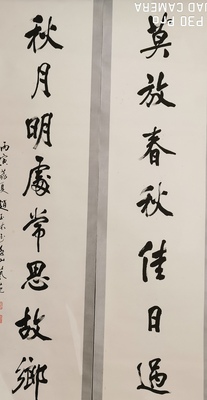 莫放春秋佳日過
秋月明處常思故鄉
丙寅
P30 Pro
UAD CAMERA